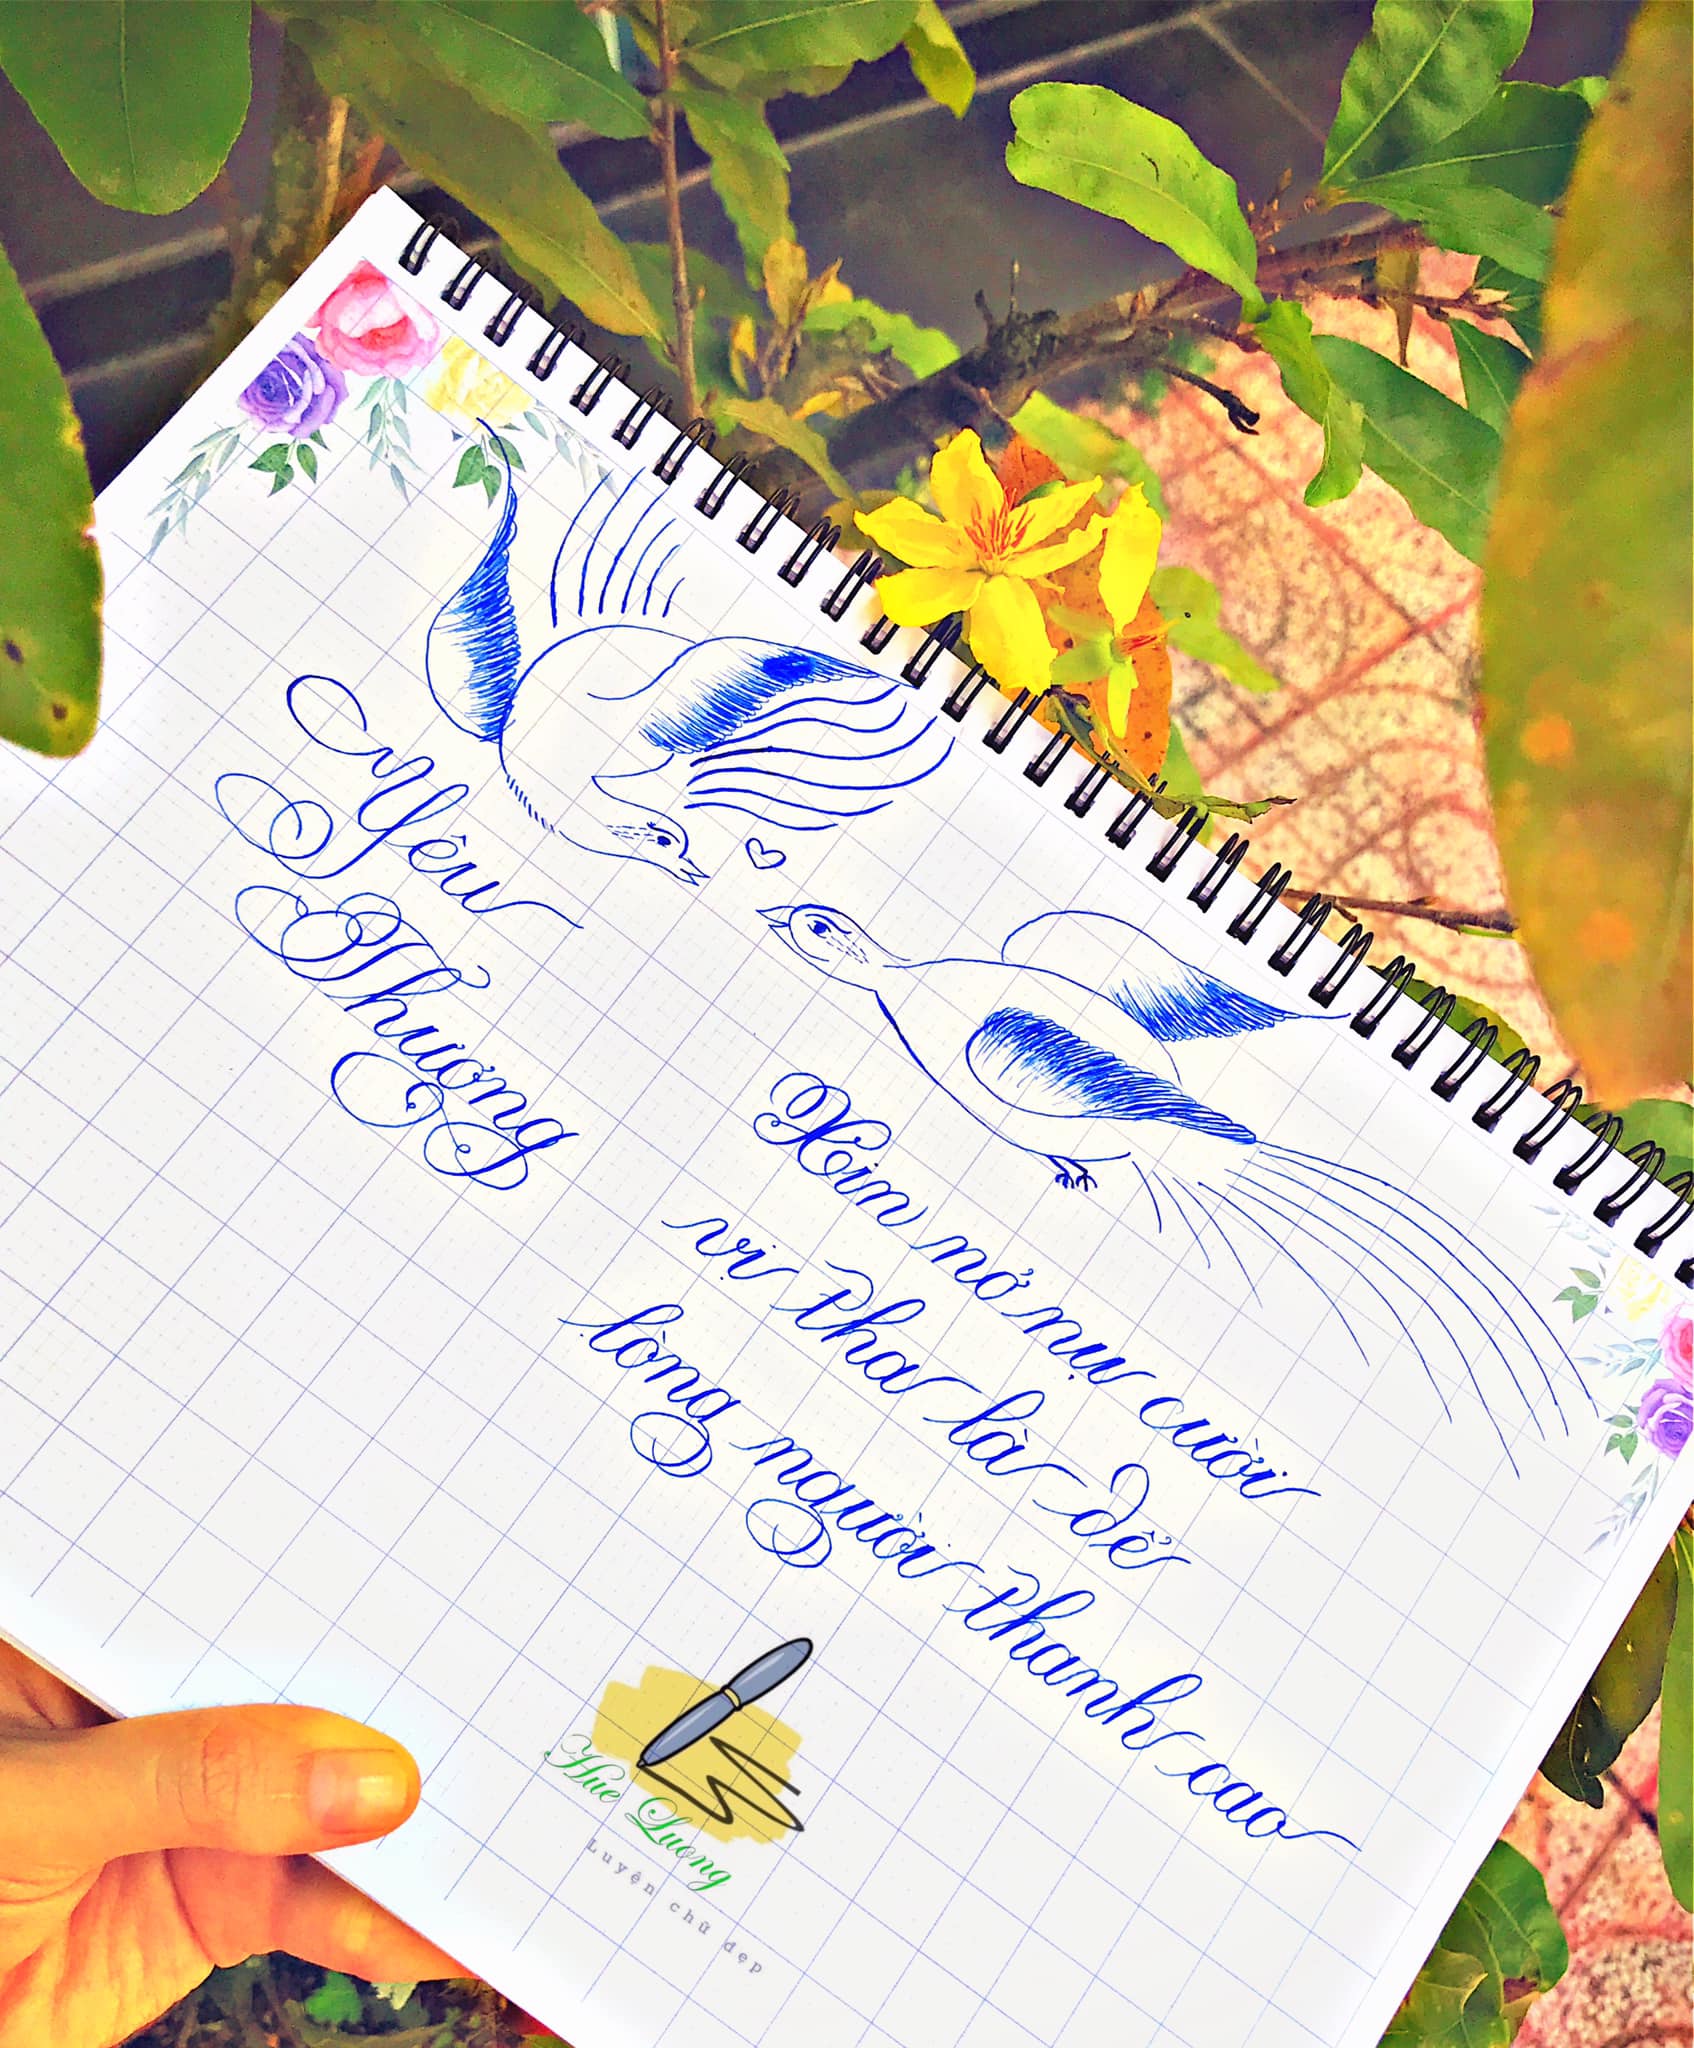 Yêu
Thương
Xin nở nụ cười
vị tha là để
lòng người thanh cao
Hue Luong
Luyện chữ đẹp